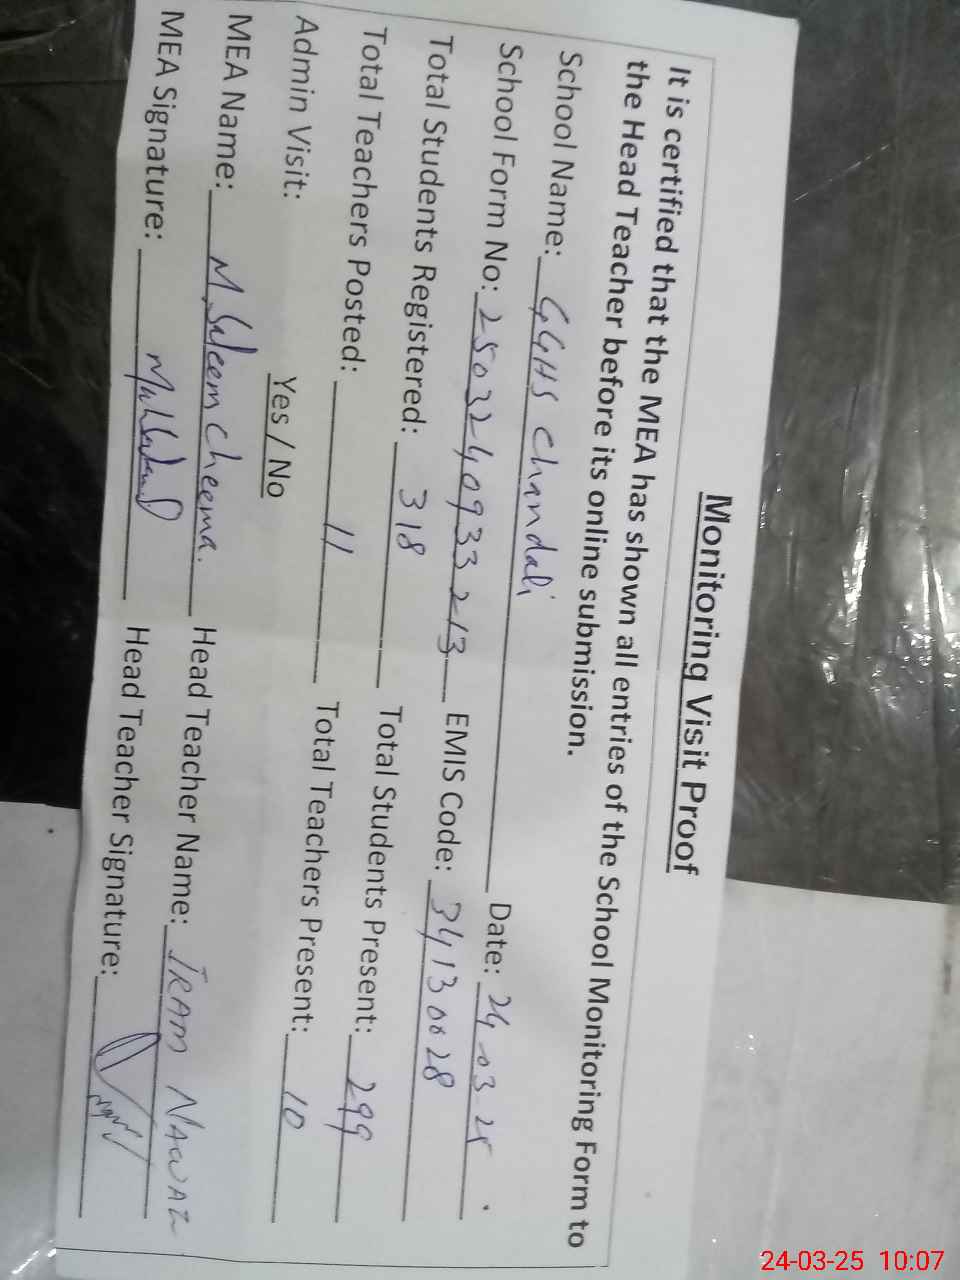 Monitoring Visit Proof
It is certified that the MEA has shown all entries of the School Monitoring Form to
the Head Teacher before its online submission.
School Name: GGHS Chandali Date: 24-03-25
School Form No: 2503240933213 EMIS Code: 34130028
Total Students Registered: 318 Total Students Present: 299
Total Teachers Posted: 11 Total Teachers Present: 10
Admin Visit: Yes / No
MEA Name: M. Saleem Cheema. Head Teacher Name: IRAM NAWAZ
MEA Signature: Head Teacher Signature:
24-03-25 10:07